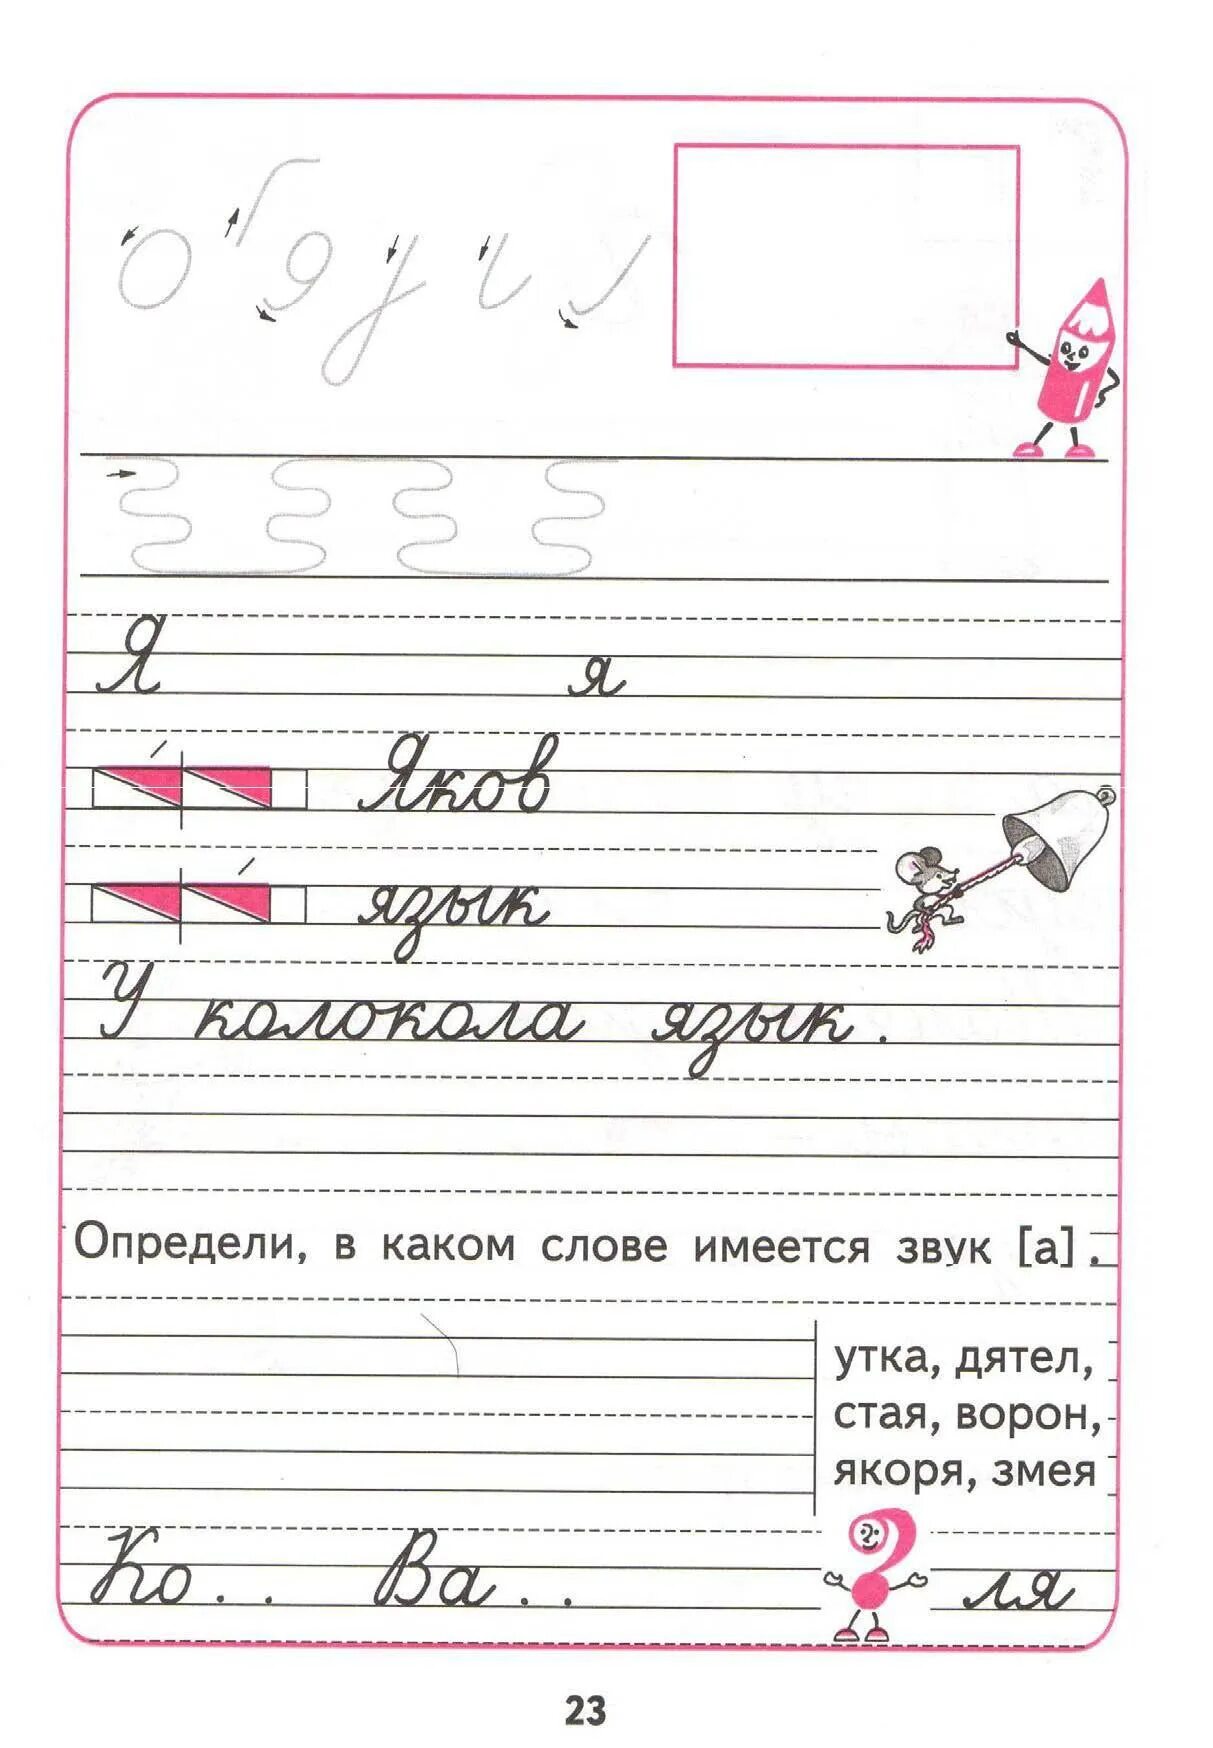 Я я
Яков
язык
У колокола язык.
Определи, в каком слове имеется звук [а].
утка, дятел,
стая, ворон,
якоря, змея
Ко . . Ва . . ля
23